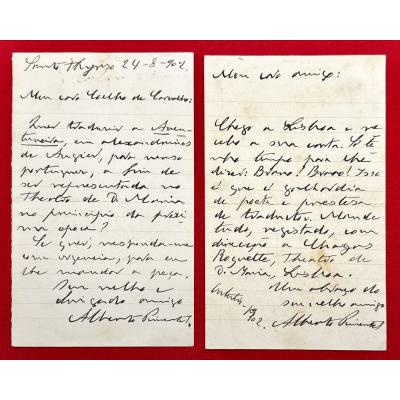 Santo Thyrso 24-8-902.
Meu caro Coelho de Carvalho:
Quer traduzir a Aven-
tureira, em alexandrinos
de Augier, para verso
portuguez, a fim de
ser representada no
Theatro de D. Maria
no principio da proxi-
ma epoca?
Se quer, responda-me
com urgencia, para eu
lhe mandar a peça.
Seu velho e
obrigado amigo
Alberto Pimentel
Meu caro amigo:
Chego a Lisboa e re-
cebo a sua carta. Só te-
nho tempo para lhe
dizer: Bravo! Bravo! Isso
é que é galhardia
de poeta e presteza
de traductor. Mande
tudo, registado, com
direcção a Chagas
Roquette, Theatro de
D. Maria, Lisboa.
Um abraço do
seu velho amigo
902. Alberto Pimentel